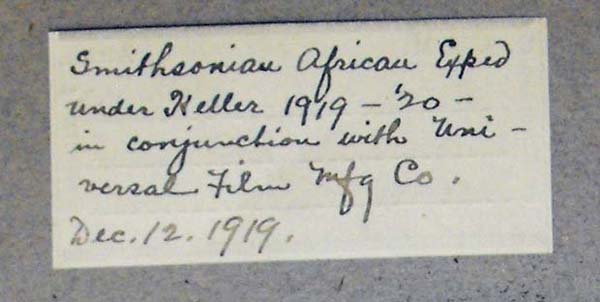 Smithsonian African Exped
under Heller 1919 - '20 -
in conjunction with Uni -
versal Film Mfg Co.
Dec. 12. 1919.